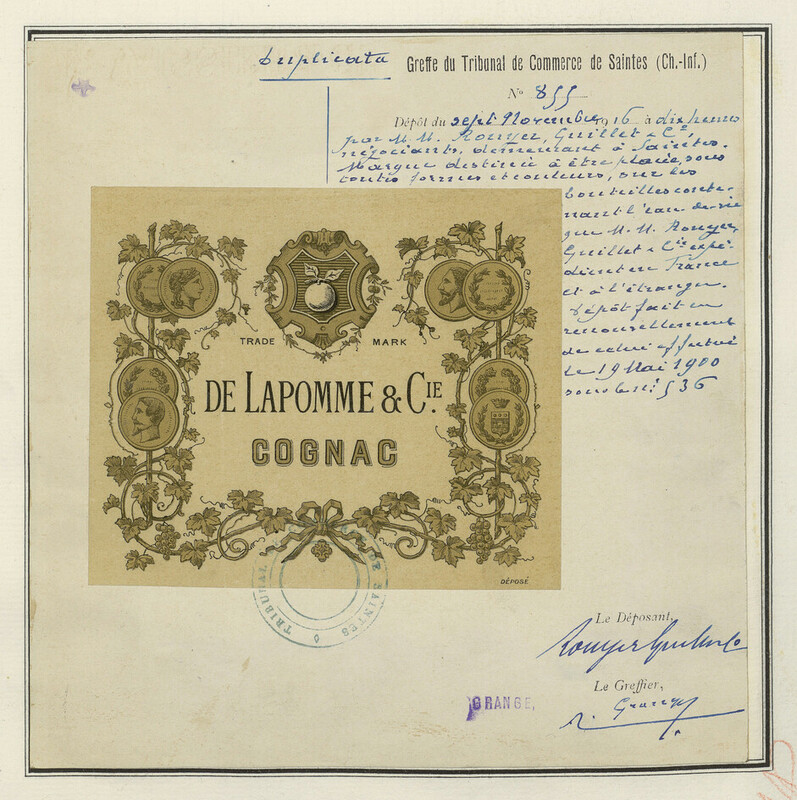 Duplicata
Greffe du Tribunal de Commerce de Saintes (Ch.-Inf.)
N° 855
Dépôt du sept Novembre 1916 à dix heures
par M. M. Rouyer, Guillet & Cie,
négociants, demeurant à Saintes.
Marque destinée à être placée, sous
toutes formes et couleurs, sur les
bouteilles conte-
nant l'eau-de-vie
que M. M. Rouyer,
Guillet & Cie expé-
dient en France
et à l'étranger.
Dépôt fait en
renouvellement
de celui effectué
le 19 Mai 1900
sous le n° 536
TRADE MARK
DE LAPOMME & CIE
COGNAC
DÉPOSÉ
TRIBUNAL DE SAINTES
Le Déposant,
Rouyer Guillet & Co
Le Greffier,
GRANGE,